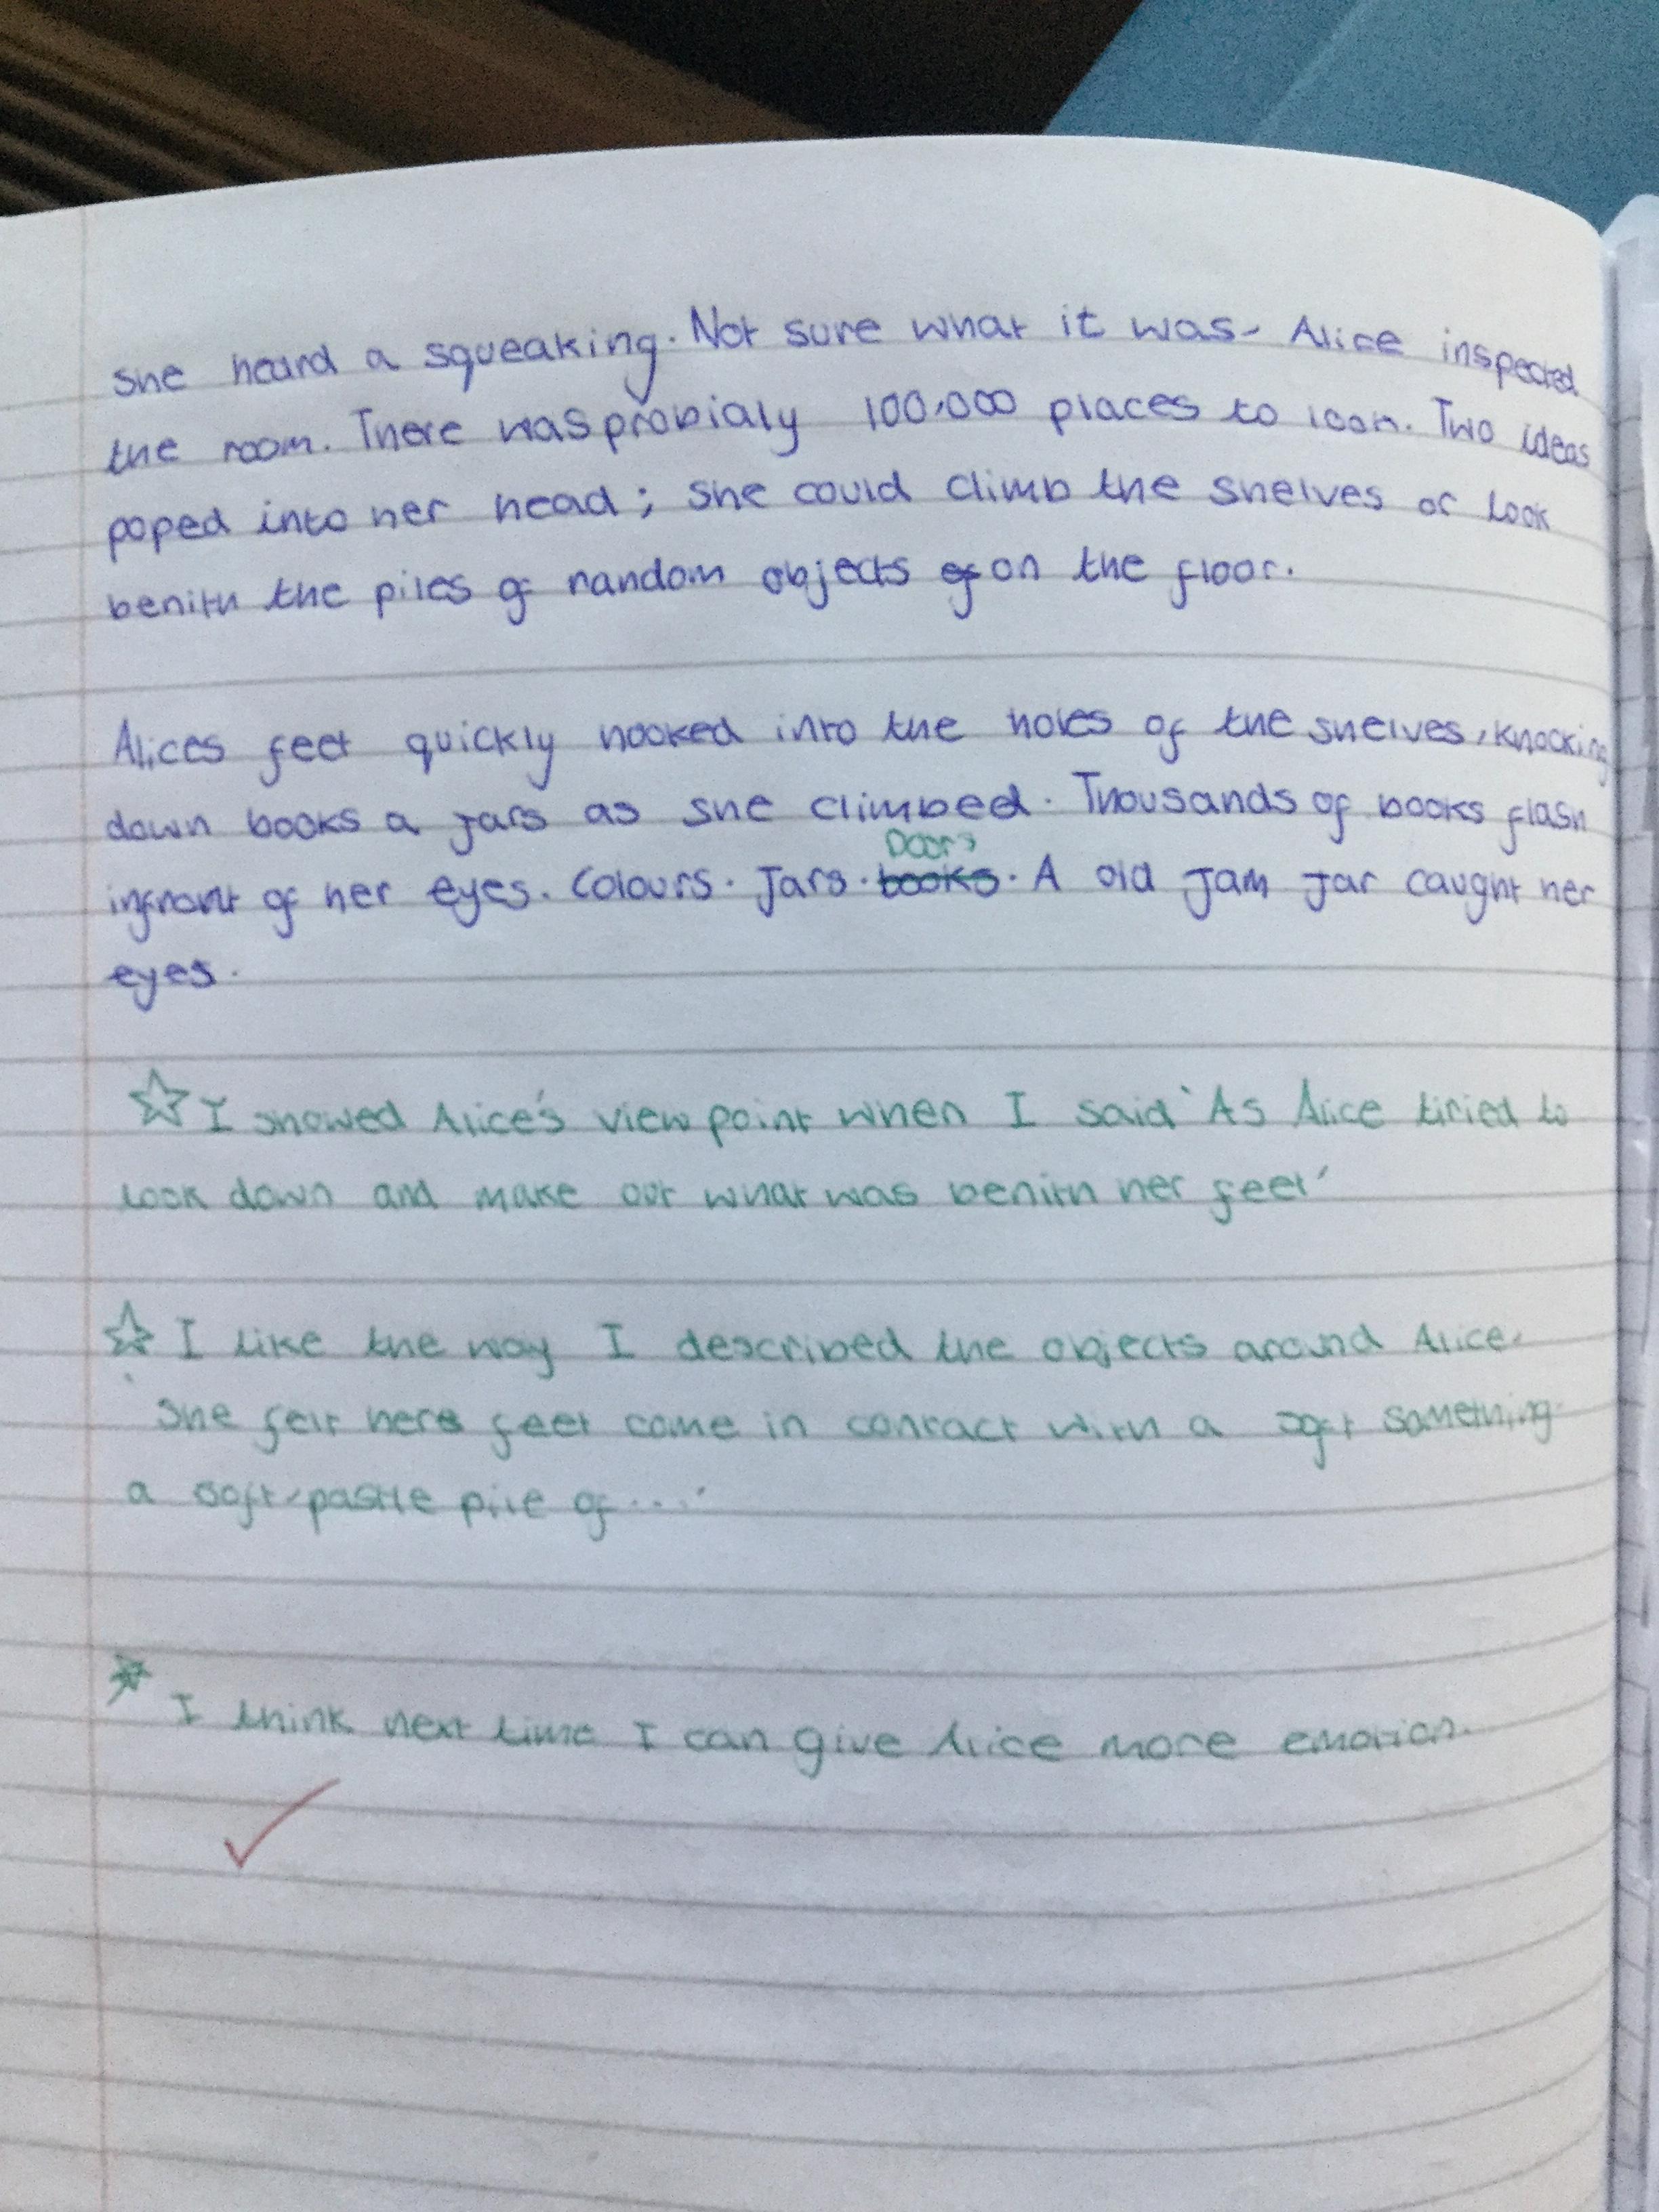 she heard a squeaking. Not sure what it was- Alice inspected
the room. There was probialy 100,000 places to look. Two ideas
poped into her head; she could climb the shelves or look
benith the piles of random objects of on the floor.
Alices feet quickly hooked into the holes of the shelves, knocking
down books a jars as she climbed. Thousands of books flash
Doors
infront of her eyes. Colours. Jars. books. A old jam jar caught her
eyes.
☆ I showed Alice's view point when I said 'As Alice tiried to
look down and make out what was benith her feet'
☆ I like the way I described the objects around Alice.
'She felt here feet come in contact with a soft something-
a soft-pastle pile of....'
I think next time I can give Alice more emotion.